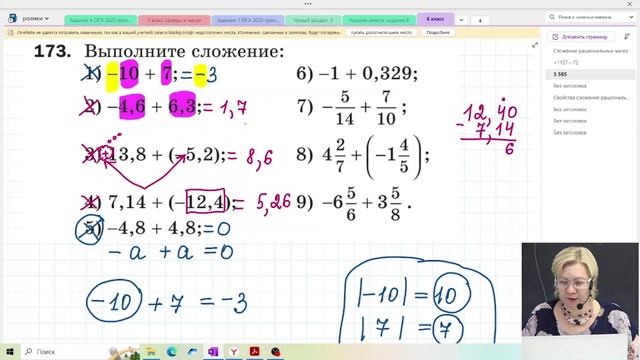 ролики
Задание 6 ОГЭ-2025 трен...
5 класс Цифры и числа
Задание 7 ОГЭ-2025 трен...
Новый раздел 2
Решаем вместе задание 6
6 класс
Поиск по записным книжкам
Купить дополнительное место
Подробнее
Добавить страницу
Сложение рациональных чисел
+1157—72
S 505
Без заголовка
Свойства сложения рациональ...
Без заголовка
Без заголовка
173. Выполните сложение:
1) −10 + 7; = −3
2) −4,6 + 6,3; = 1,7
3) 13,8 + (−5,2); = 8,6
4) 7,14 + (−12,4); = 5,26
5) −4,8 + 4,8; = 0
− a + a = 0
−10 + 7 = −3
6) −1 + 0,329;
7) − 5/14 + 7/10 ;
8) 4 2/7 + (−1 4/5) ;
9) −6 5/6 + 3 5/8 .
12,40
− 7,14
6
|−10| = 10
| 7 | = 7
Поиск